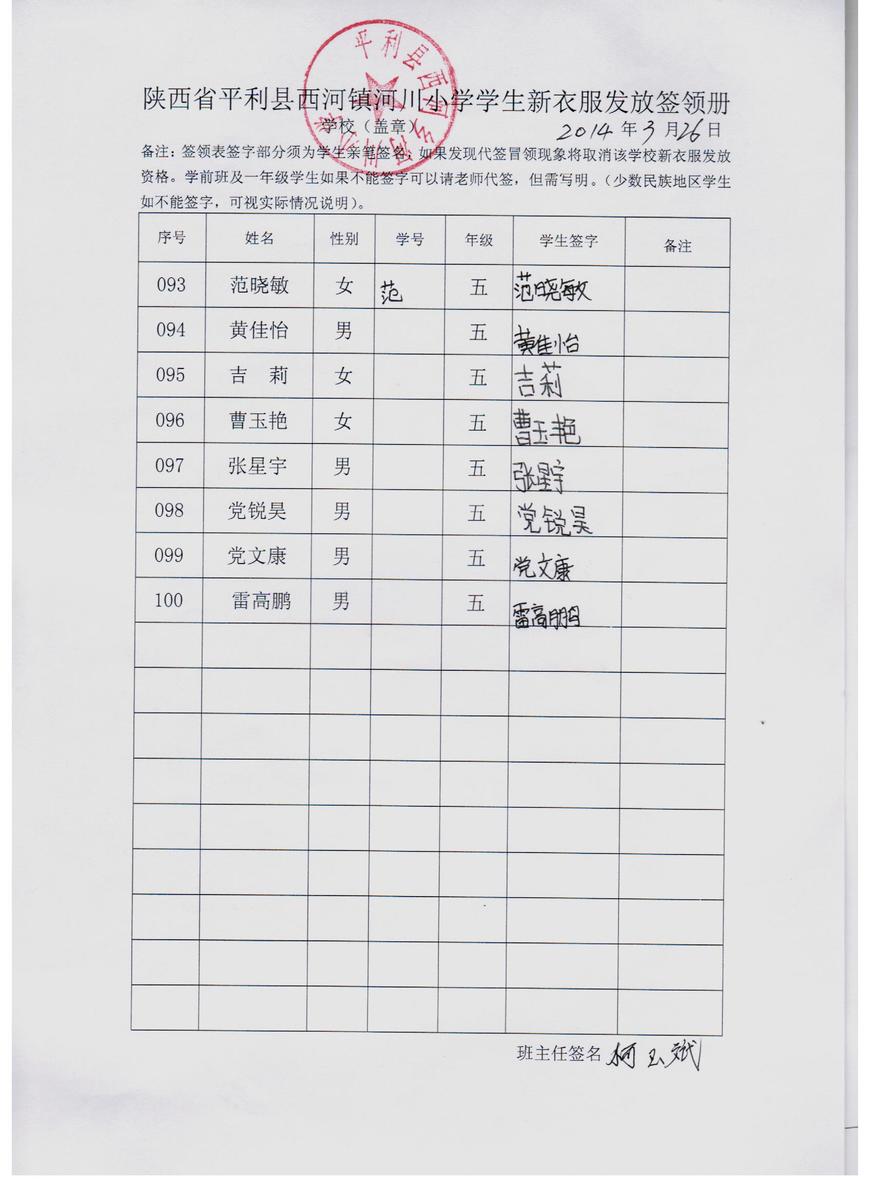 陕西省平利县西河镇河川小学学生新衣服发放签领册
平利县西河乡河川小学
学校（盖章） 2014 年 3 月 26 日
备注：签领表签字部分须为学生亲笔签名，如果发现代签冒领现象将取消该学校新衣服发放
资格。学前班及一年级学生如果不能签字可以请老师代签，但需写明。（少数民族地区学生
如不能签字，可视实际情况说明）。
序号 姓名 性别 学号 年级 学生签字 备注
093 范晓敏 女 范 五 范晓敏
094 黄佳怡 男 五 黄佳怡
095 吉 莉 女 五 吉莉
096 曹玉艳 女 五 曹玉艳
097 张星宇 男 五 张星宇
098 党锐昊 男 五 党锐昊
099 党文康 男 五 党文康
100 雷高鹏 男 五 雷高鹏
班主任签名 柯玉斌